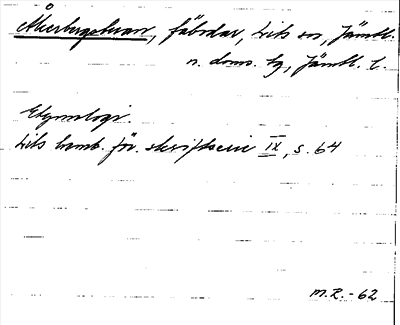 Åkerbergsbuan, fäbodar, Lits sn, Jämtl.
n. doms. hg, Jämtl. l.
Etymologi.
Lits hemb. för. skriftserie IX, s. 64
M.R. -62